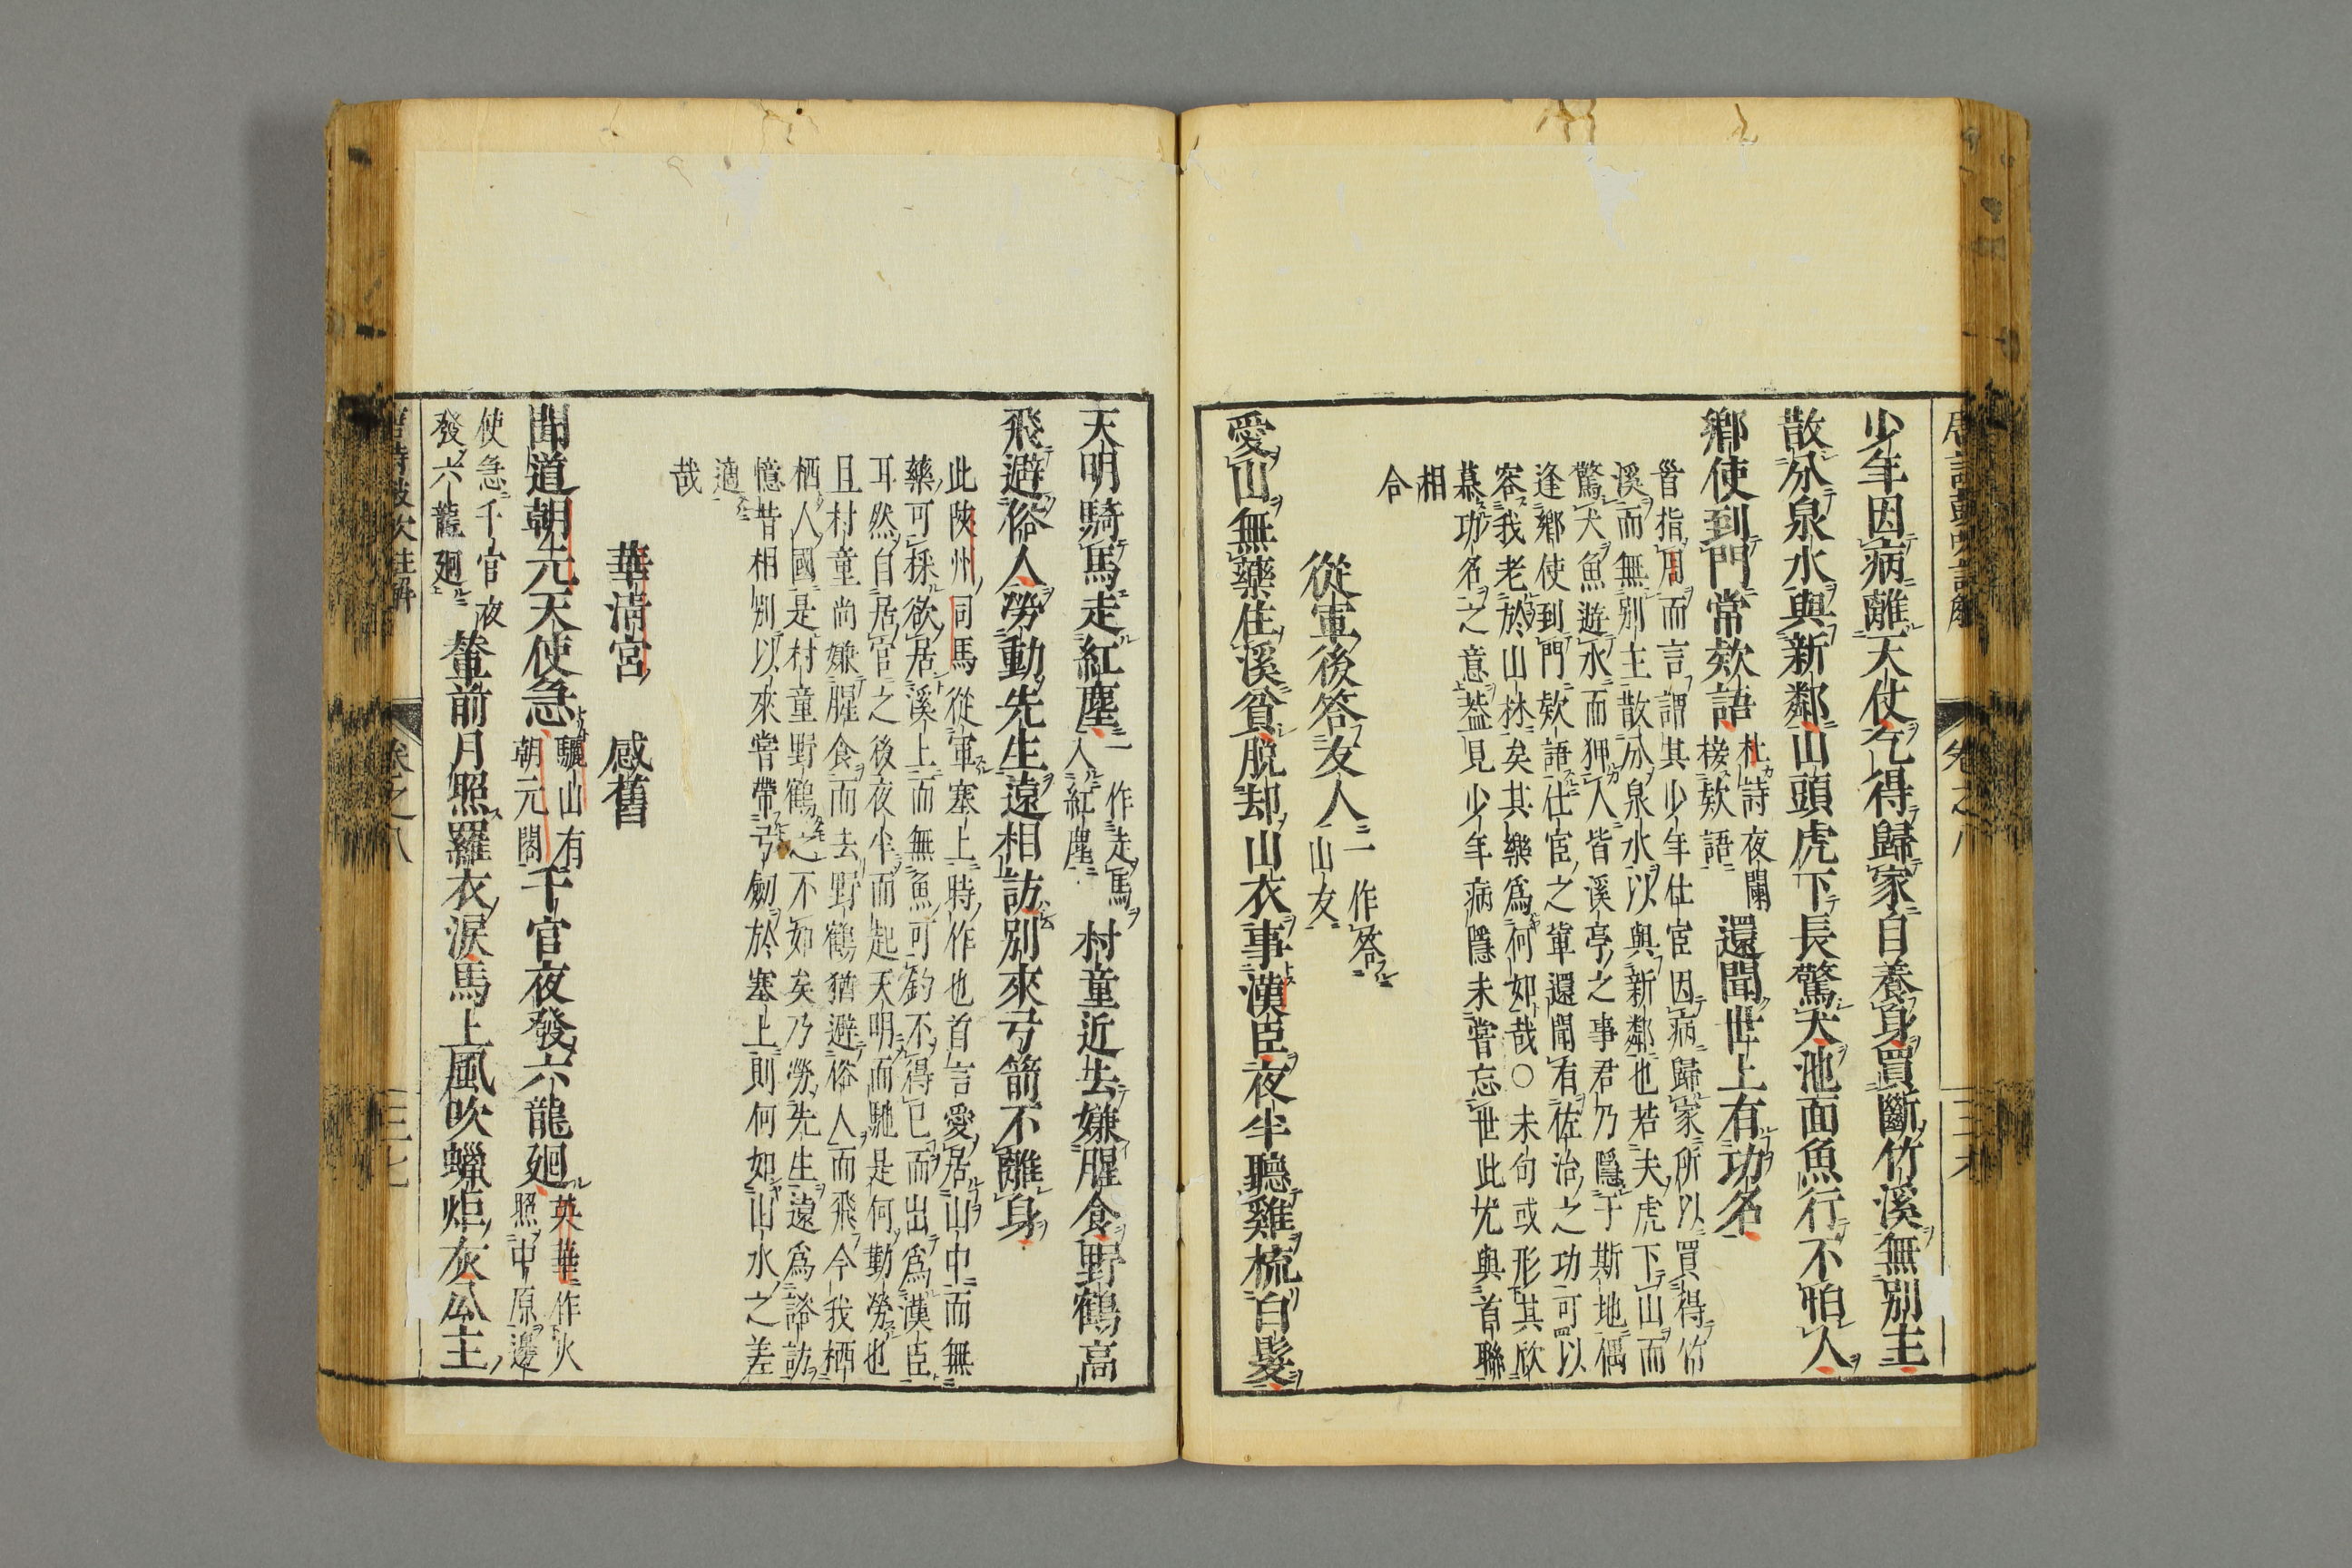 少年因病離天仗乞得歸家自養身買斷竹溪無別主
散分泉水與新鄰山頭虎下長驚犬池面魚行不怕人
鄉使到門常欵語杜詩夜闌接欵語還聞世上有功名
首指周而言謂其少年仕宦因病歸家所以買得竹
溪而無別主散分泉水以與新鄰也若夫虎下山而
驚犬魚遊水而狎人皆溪亭之事君乃隱于斯地偶
逢鄉使到門欵語仕宦之輩還聞有佐治之功可以
容我老於山林矣其樂爲何如哉○未句或形其欣
慕功名之意葢見少年病隱未嘗忘世此尤與首聯
相
合
從軍後答友人一作答山友
愛山無藥住溪貧脱却山衣事漢臣夜半聽雞梳白髮
天明騎馬走紅塵一作走馬入紅塵村童近去嫌腥食野鶴高
飛避俗人勞動先生遠相訪別來弓箭不離身
此陝州司馬從軍塞上時作也首言愛居山中而無
藥可採欲居溪上而無魚可釣不得已而出爲漢臣
耳然自居官之後夜半而起天明而馳是何勤勞也
且村童尚嫌腥食而去野鶴猶避俗人而飛今我栖
栖人國是村童野鶴之不如矣乃勞先生遠爲諮訪
憶昔相別以來嘗帶弓劒於塞上則何如山水之差
適
哉
華清宮 感舊
聞道朝元天使急驪山有朝元閣千官夜發六龍廻英華作火照中原邊
使急千官夜發六龍廻輦前月照羅衣淚馬上風吹蠟炬灰公主
卷之八
三七